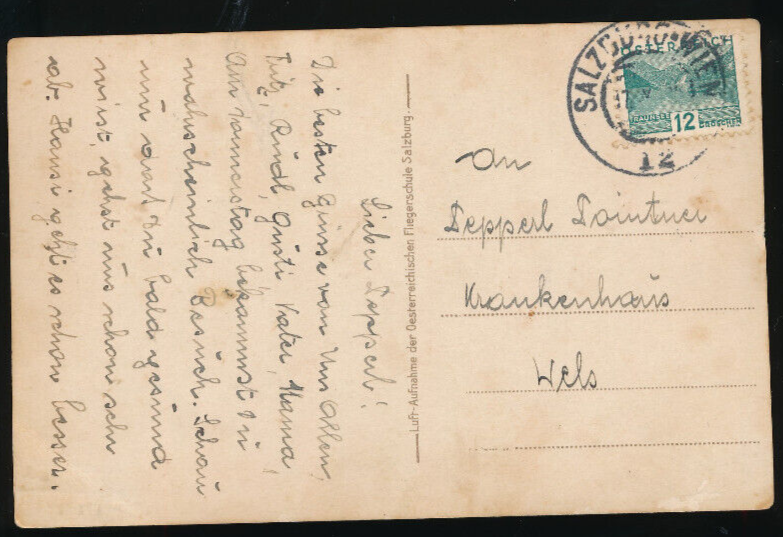 Lieber Pepperl!
Die besten Grüsse von Uns Allen,
Fritz, Rudl, Gusti, Vater, Mama,
Am Donnerstag bekommst Du
wahrscheinlich Besuch. Schau
nur dass Du bald gesund
wirst, gehst uns schon sehr
ab. Hansi geht es schon besser.
Luft-Aufnahme der Oesterreichischen Fliegerschule Salzburg.
SALZBURG-WIEN
12
ÖSTERREICH
TRAUNSEE 12 GROSCHEN
An
Pepperl Pointner
Krankenhaus
Wels